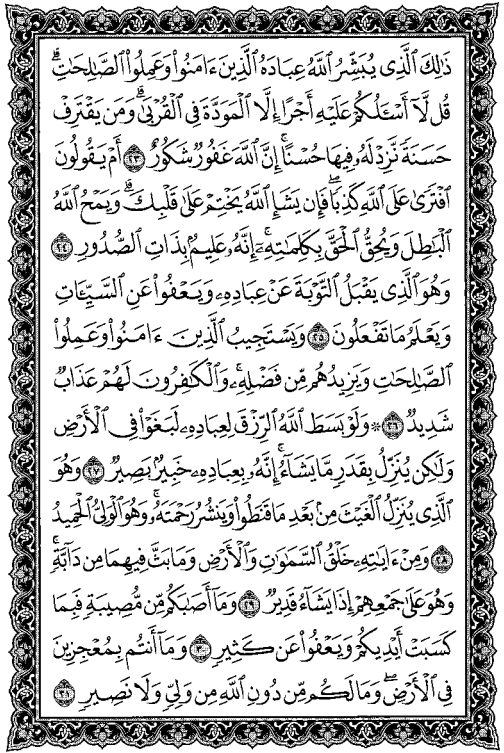 ذَٰلِكَ ٱلَّذِى يُبَشِّرُ ٱللَّهُ عِبَادَهُ ٱلَّذِينَ ءَامَنُوا۟ وَعَمِلُوا۟ ٱلصَّٰلِحَٰتِ ۗ
قُل لَّآ أَسْـَٔلُكُمْ عَلَيْهِ أَجْرًا إِلَّا ٱلْمَوَدَّةَ فِى ٱلْقُرْبَىٰ ۗ وَمَن يَقْتَرِفْ
حَسَنَةً نَّزِدْ لَهُۥ فِيهَا حُسْنًا ۚ إِنَّ ٱللَّهَ غَفُورٌ شَكُورٌ ٢٣ أَمْ يَقُولُونَ
ٱفْتَرَىٰ عَلَى ٱللَّهِ كَذِبًا ۖ فَإِن يَشَإِ ٱللَّهُ يَخْتِمْ عَلَىٰ قَلْبِكَ ۗ وَيَمْحُ ٱللَّهُ
ٱلْبَٰطِلَ وَيُحِقُّ ٱلْحَقَّ بِكَلِمَٰتِهِۦٓ ۚ إِنَّهُۥ عَلِيمٌۢ بِذَاتِ ٱلصُّدُورِ ٢٤
وَهُوَ ٱلَّذِى يَقْبَلُ ٱلتَّوْبَةَ عَنْ عِبَادِهِۦ وَيَعْفُوا۟ عَنِ ٱلسَّيِّـَٔاتِ
وَيَعْلَمُ مَا تَفْعَلُونَ ٢٥ وَيَسْتَجِيبُ ٱلَّذِينَ ءَامَنُوا۟ وَعَمِلُوا۟
ٱلصَّٰلِحَٰتِ وَيَزِيدُهُم مِّن فَضْلِهِۦ ۚ وَٱلْكَٰفِرُونَ لَهُمْ عَذَابٌ
شَدِيدٌ ٢٦ ۞ وَلَوْ بَسَطَ ٱللَّهُ ٱلرِّزْقَ لِعِبَادِهِۦ لَبَغَوْا۟ فِى ٱلْأَرْضِ
وَلَٰكِن يُنَزِّلُ بِقَدَرٍ مَّا يَشَآءُ ۚ إِنَّهُۥ بِعِبَادِهِۦ خَبِيرٌۢ بَصِيرٌ ٢٧ وَهُوَ
ٱلَّذِى يُنَزِّلُ ٱلْغَيْثَ مِنۢ بَعْدِ مَا قَنَطُوا۟ وَيَنشُرُ رَحْمَتَهُۥ ۚ وَهُوَ ٱلْوَلِىُّ ٱلْحَمِيدُ
٢٨ وَمِنْ ءَايَٰتِهِۦ خَلْقُ ٱلسَّمَٰوَٰتِ وَٱلْأَرْضِ وَمَا بَثَّ فِيهِمَا مِن دَآبَّةٍ ۚ
وَهُوَ عَلَىٰ جَمْعِهِمْ إِذَا يَشَآءُ قَدِيرٌ ٢٩ وَمَآ أَصَٰبَكُم مِّن مُّصِيبَةٍ فَبِمَا
كَسَبَتْ أَيْدِيكُمْ وَيَعْفُوا۟ عَن كَثِيرٍ ٣٠ وَمَآ أَنتُم بِمُعْجِزِينَ
فِى ٱلْأَرْضِ ۖ وَمَا لَكُم مِّن دُونِ ٱللَّهِ مِن وَلِىٍّ وَلَا نَصِيرٍ ٣١